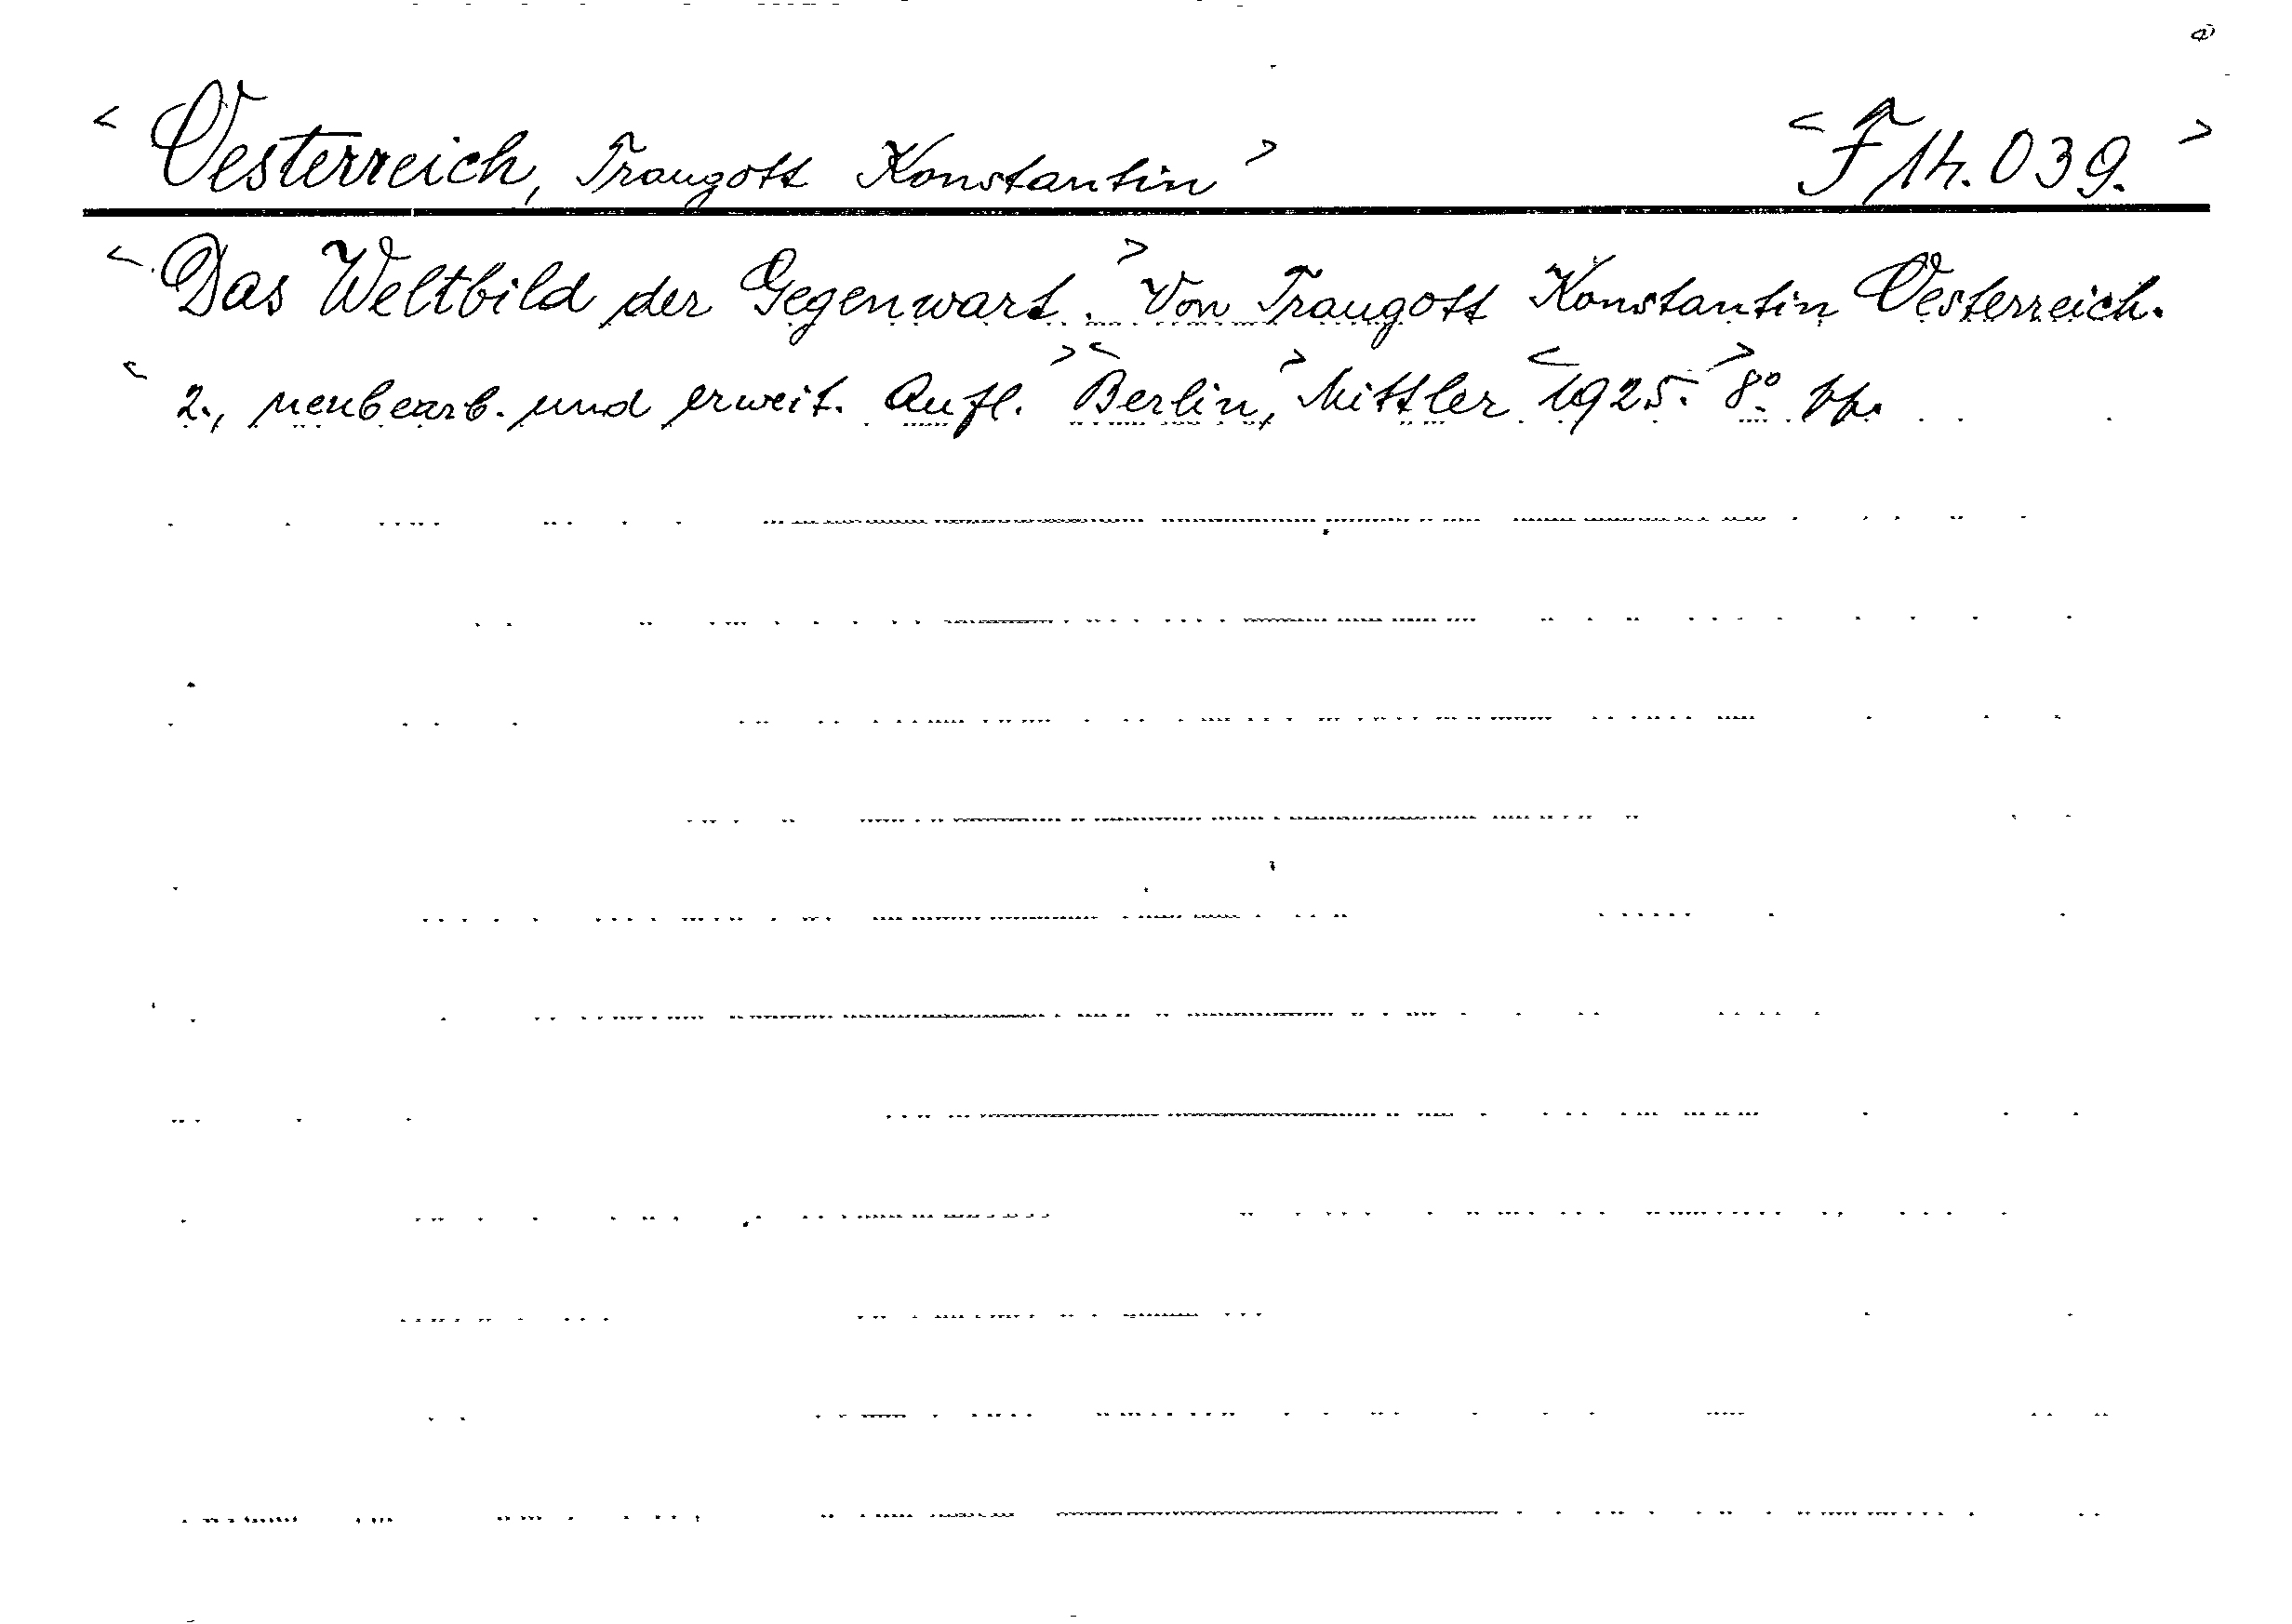 < Oesterreich, Traugott Konstantin > < F 14.039. >
< Das Weltbild der Gegenwart. > Von Traugott Konstantin Oesterreich.
< 2., neubearb. und erweit. Aufl. > < Berlin, > Mittler < 1925. > 8°